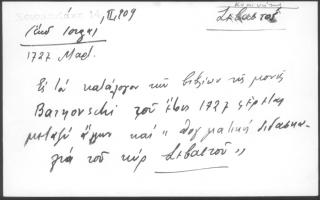 , II, 909
Σεβαστοῦ
1727 Μαρ.
Εἰς τὸν κατάλογον τῶν βιβλίων τῆς μονῆς
Barnovschi τοῦ ἔτους 1727 φέρεται
μεταξὺ ἄλλων καὶ " δογματικὴ διδασκα-
λία τοῦ κὺρ Σεβαστοῦ "